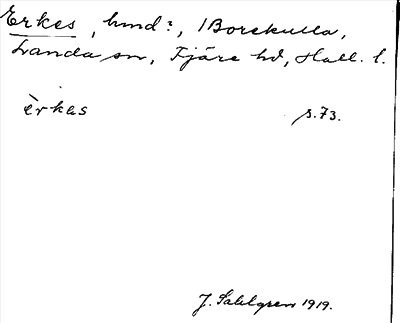 Erkes, hmd?, Borekulla,
Landa sn, Fjäre hd, Hall. l.
èrkas s.73.
J. Sahlgren 1919.